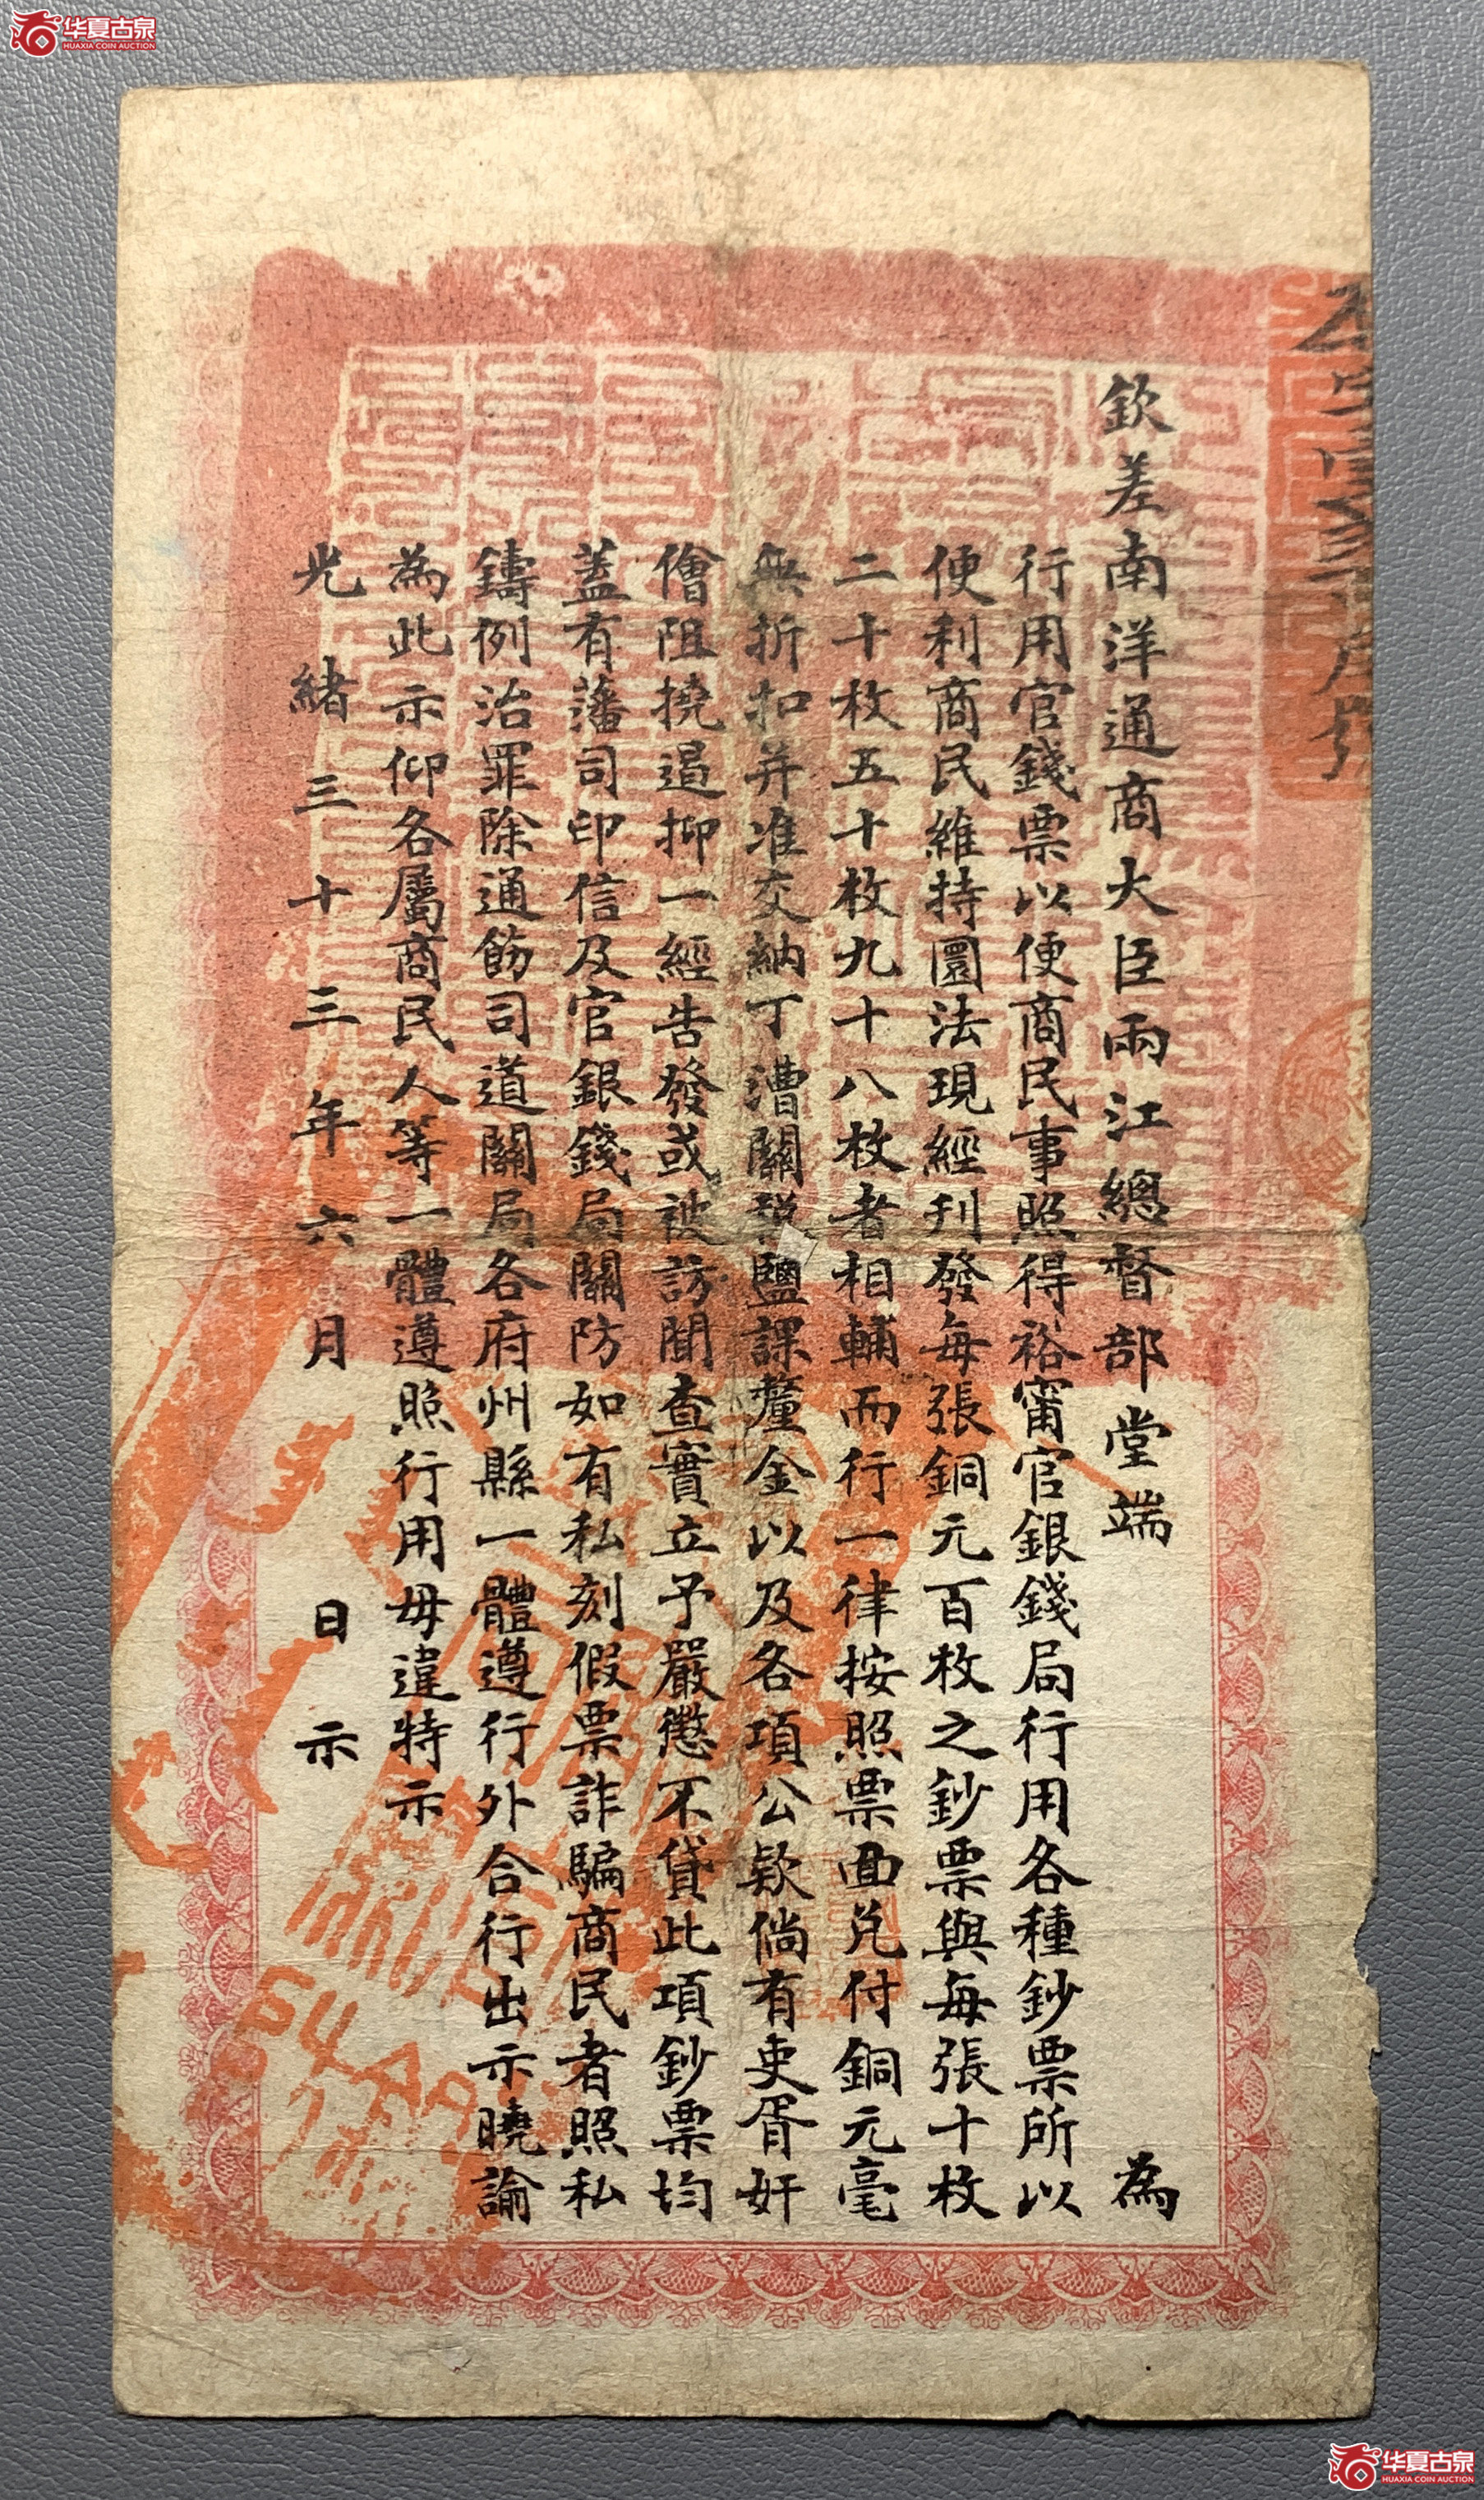 华夏古泉
HUAXIA COIN AUCTION
欽差南洋通商大臣兩江總督部堂端 為
行用官錢票以便商民事照得裕甯官銀錢局行用各種鈔票所以
便利商民維持圜法現經刋發每張銅元百枚之鈔票與每張十枚
二十枚五十枚九十八枚者相輔而行一律按照票面兑付銅元毫
無折扣并准交納丁漕關税鹽課釐金以及各項公欵倘有吏胥奸
儈阻撓遏抑一經告發或被訪聞查實立予嚴懲不貸此項鈔票均
蓋有藩司印信及官銀錢局關防如有私刻假票詐騙商民者照私
鑄例治罪除通飭司道關局各府州縣一體遵行外合行出示曉諭
為此示仰各屬商民人等一體遵照行用毋違特示
光緒三十三年六月 日示
华夏古泉
HUAXIA COIN AUCTION